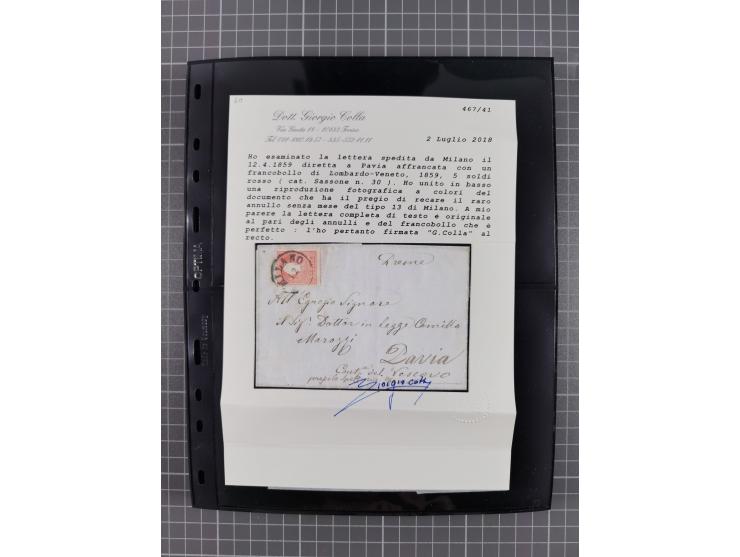 467/41
Dott. Giorgio Colla
2 Luglio 2018
Ho esaminato la lettera spedita da Milano il
12.4.1859 diretta a Pavia affrancata con un
francobollo di Lombardo-Veneto, 1859, 5 soldi
rosso ( cat. Sassone n. 30 ). Ho unito in basso
una riproduzione fotografica a colori del
documento che ha il pregio di recare il raro
annullo senza mese del tipo 13 di Milano. A mio
parere la lettera completa di testo è originale
al pari degli annulli e del francobollo che è
perfetto : l'ho pertanto firmata "G.Colla" al
recto.
MILANO
All Egregio Signore
Dottor in legge Camillo
Marozzi
Pavia
del Vescovo
Giorgio Colla
OPTIMA